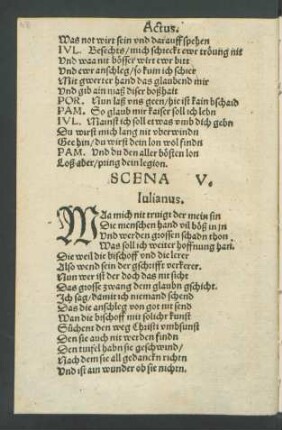 Actus.
Was not wirt sein vnd darauff spehen
IVL. Besechts/mich schreckt ewr tröung nit
Vnd waa nit bösser wirt ewr bitt
Vnd ewr anschleg/so kum ich schier
Mit gwerter hand das glaubend mir
Vnd gib ain maß diser boßhait
POR. Nun laß vns geen/hie ist kain bschaid
PAM. So glaub mir kaiser soll ich lebn
IVL. Mainst ich söll etwas vmb dich gebn
Du wirst mich lang nit vberwindn
Gee hin/du wirst dein lon wol findn
PAM. Vnd du den aller bösten lon
Loß aber/pring dein legion.
SCENA V.
Iulianus.
MAa mich nit truigt der mein sin
Die menschen hand vil böß in jn
Vnd werden grossen schadn thon
Was soll ich weiter hoffnung han.
Die weil die bischoff vnd die lerer
Also wend sein der gschrifft verkerer.
Nun wer ist der doch das nit sicht
Das grosse zwang dem glaubn gschicht.
Ich sag/damit ich niemand schend
Das die anschleg von got nit send
Wan die bischoff mit solicht kunst
Süchent den weg Christi vmbsunst
Den sie auch nit werden findn
Den teufel habn sie geschwind/
Nach dem sie all gedanckn richtn
Vnd ist ain wunder ob sie nichtn.